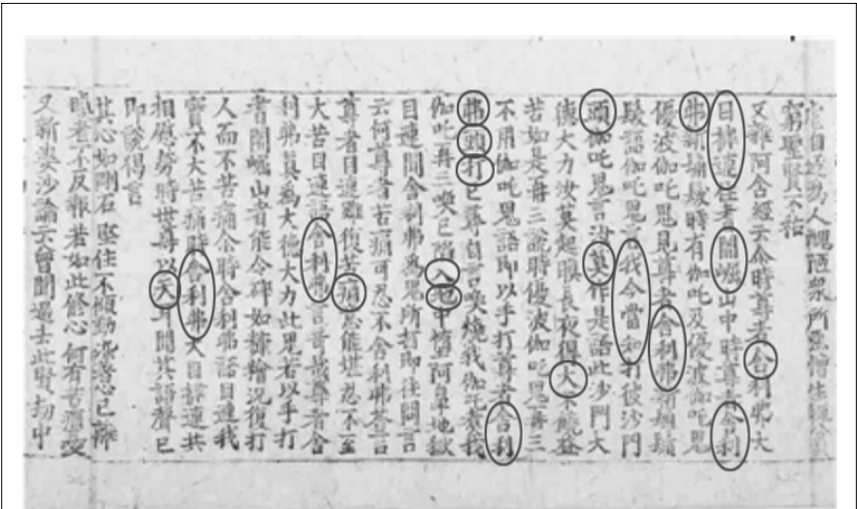 人醜陋衆所惡
聖賢不
又雜阿含經云尒時尊者舍利弗大
目揵連住耆闍崛山中時尊者舍利
弗新剃髮時有伽吒及優波伽吒鬼
優波伽吒鬼見尊者舍利弗新剃鬚
髮語伽吒鬼言我今當和打彼沙門
頭伽吒鬼言汝莫作是語此沙門大
德大力汝莫起瞋長夜得大不饒益
苦如是再三說時優波伽吒鬼再三
不用伽吒鬼語即以手打尊者舍利
弗頭打已尋自言喚燒我伽吒煮我
伽吒再三喚已陷入地中墮阿鼻地獄
目連聞舍利弗為鬼所打即往問言
云何尊者苦痛可忍不舍利弗荅言
尊者目連雖復苦痛意能堪忍不至
大苦目連語舍利弗言奇哉尊者舍
利弗真為大德大力此鬼若以手打
耆闍崛山者能令碎如糠糩況復打
人而不苦痛尒時舍利弗語目連我
實不大苦痛時舍利弗大目揵連共
相慰勞時世尊以天耳聞其語聲已
即說偈言
其心如剛石 堅住不傾動 染著心已離
瞋者不反報 若如此修心 何有苦痛憂
又新婆沙論云曾聞過去此賢劫中